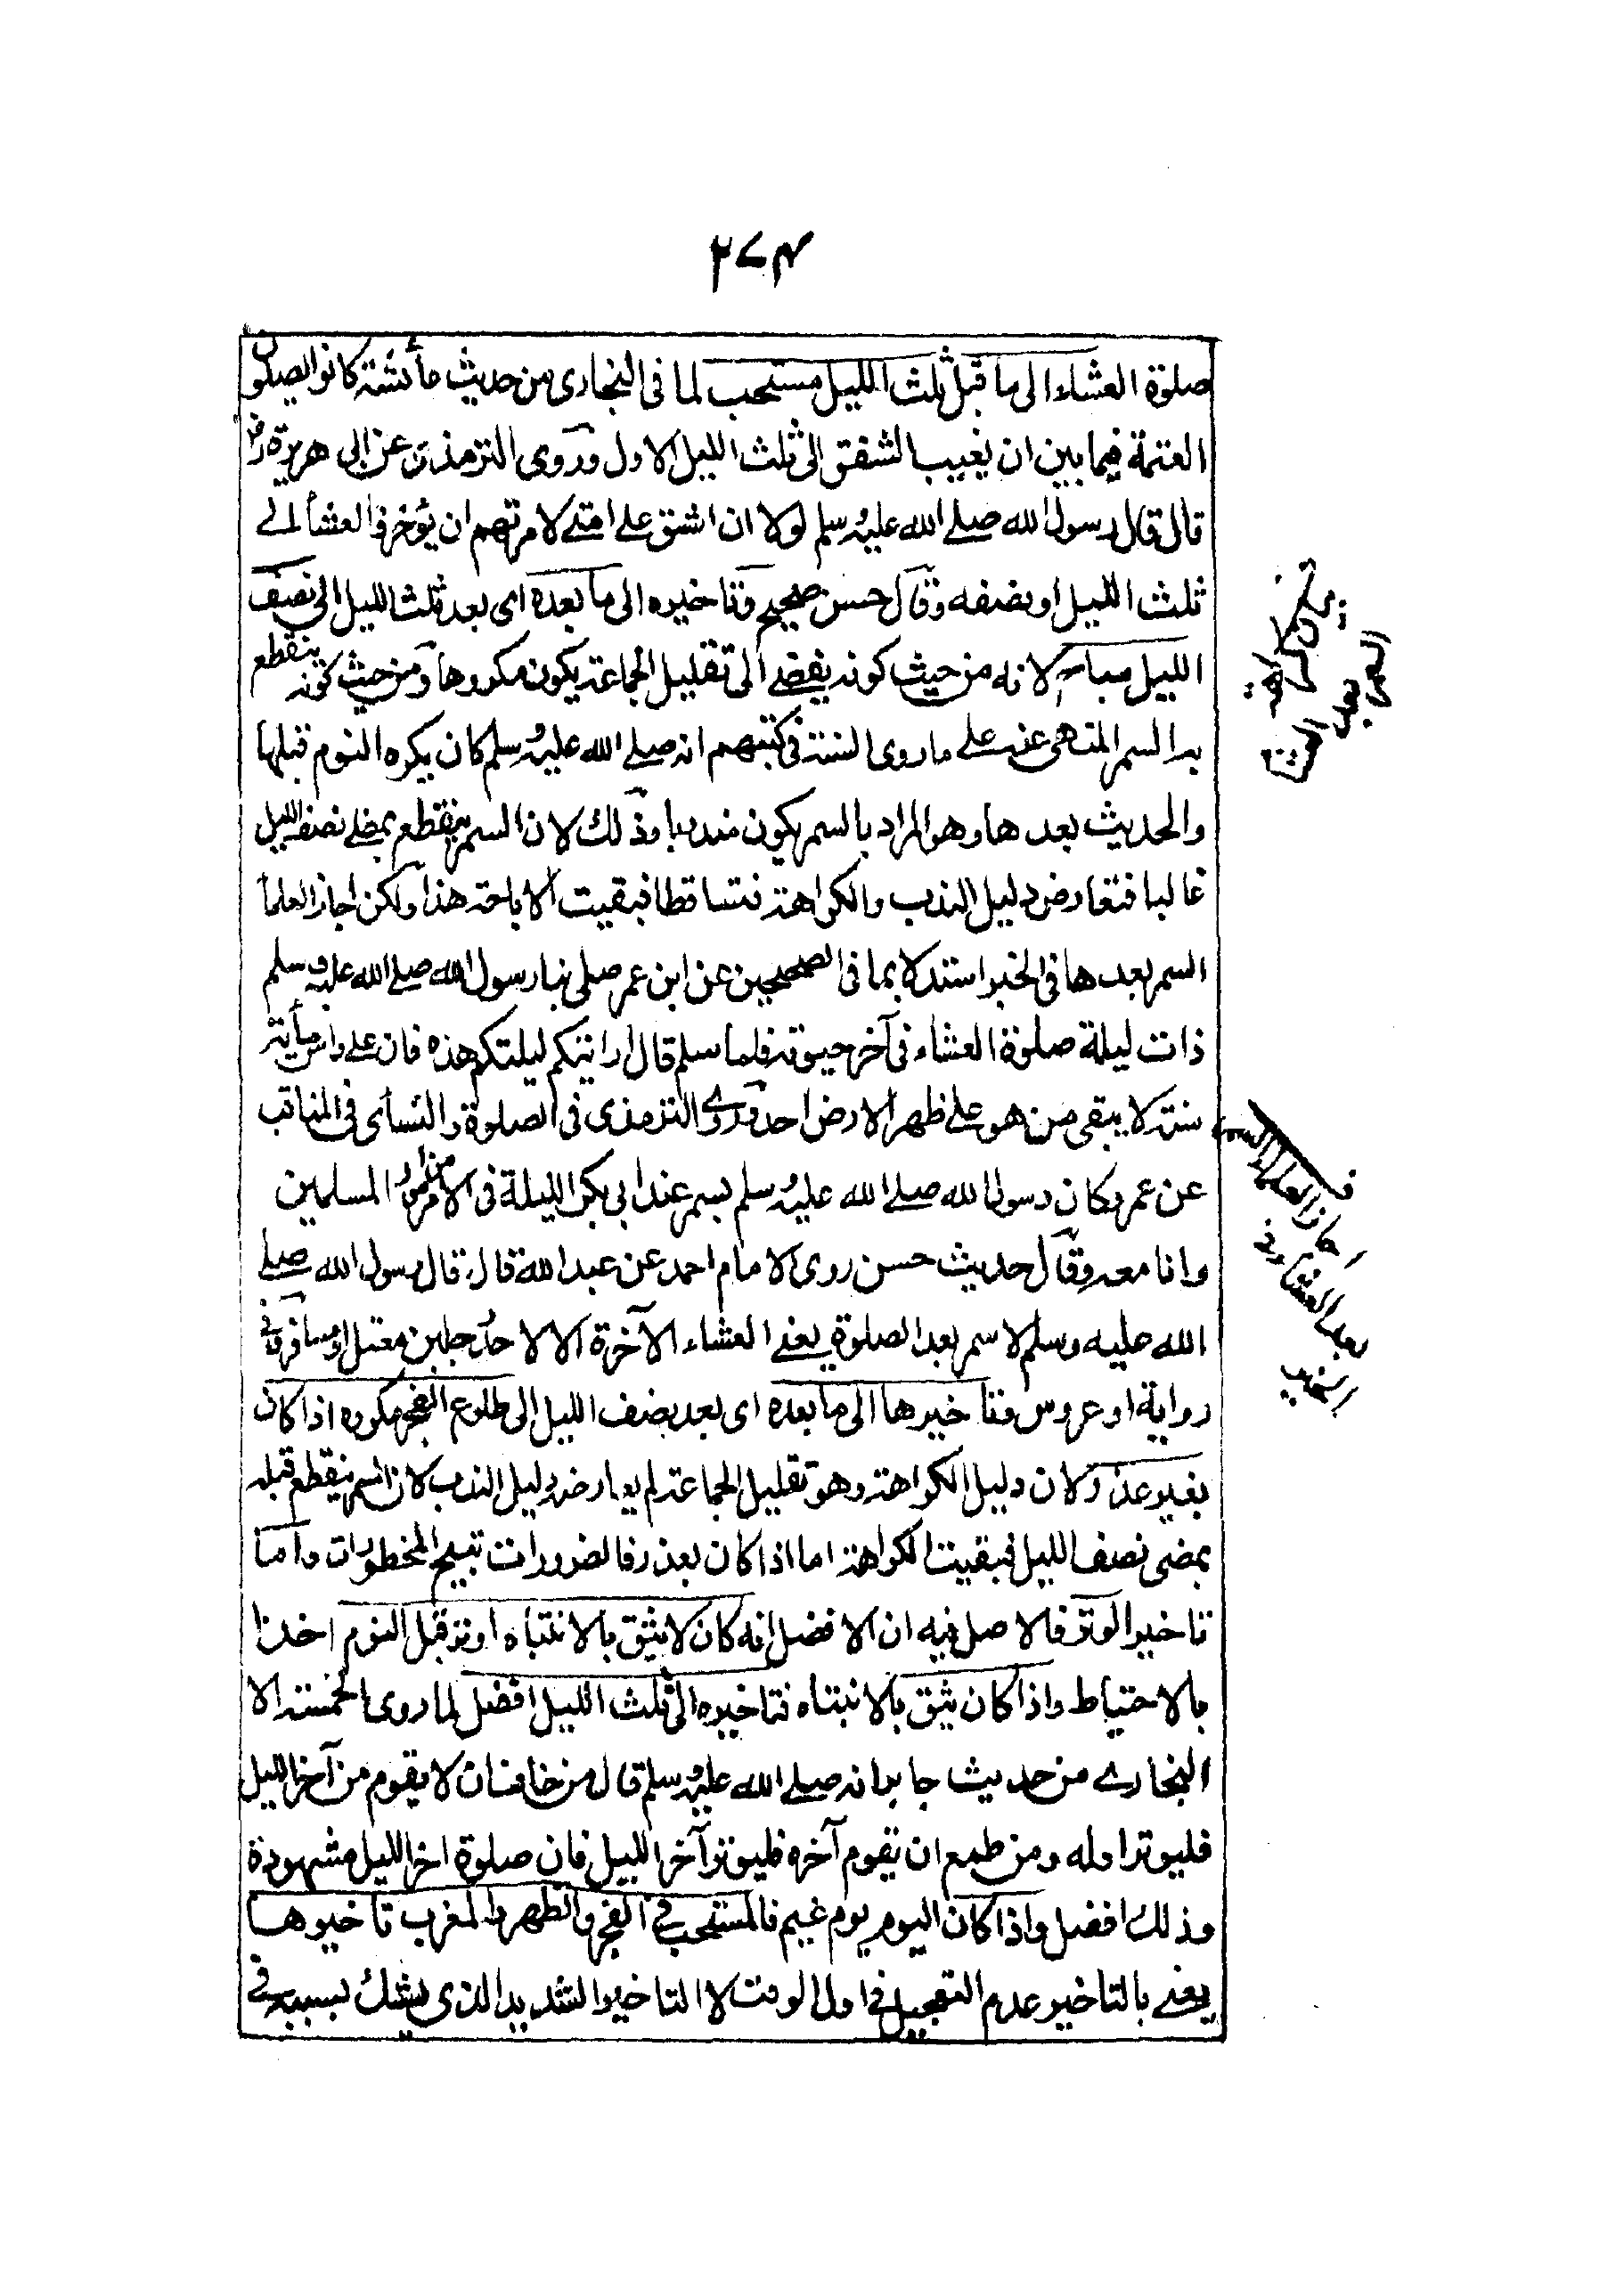 ۲۷۴
صلوة العشاء الى ما قبل ثلث الليل مستحب لما فى البخارى من حديث عائشة كانوا يصلون
العتمة فيما بين ان يغيب الشفق الى ثلث الليل الاول وروى الترمذى عن ابى هريرة رض
قال قال رسول الله صلى الله عليه وسلم لولا ان اشق على امتى لامرتهم ان يؤخروا العشأ الى
ثلث الليل او نصفه وقال حسن صحيح وتاخيره الى ما بعده اى بعد ثلث الليل الى نصف
الليل مباح لانه من حيث كونه يفضى الى تقليل الجماعة يكون مكروها ومن حيث كونه ينقطع
به السمر المنهى عنه على ما روى الستة فى كتبهم انه صلى الله عليه وسلم كان يكره النوم قبلها
والحديث بعدها وهو المراد بالسمر يكون مندوبا وذلك لان السمر ينقطع بمضى نصف الليل
غالبا فتعارض دليل الندب والكراهة فتساقطا فبقيت الاباحة هذا ولكن اجاز العلمأ
السمر بعدها فى الخير استدلالا بما فى الصحيحين عن ابن عمر صلى بنا رسول الله صلى الله عليه وسلم
ذات ليلة صلوة العشاء فى آخر حيوته فلما سلم قال ارايتكم ليلتكم هذه فان على راس مأية
سنة لا يبقى من هو على ظهر الارض احد وروى الترمذى فى الصلوة والنسأى فى المناقب
عن عمر كان رسول الله صلى الله عليه وسلم يسمر عند ابى بكر الليلة فى الامر من امور المسلمين
وانا معه وقال حديث حسن روى الامام احمد عن عبد الله قال قال رسول الله صلى
الله عليه وسلم لا سمر بعد الصلوة يعنى العشاء الآخرة الا لاحد رجلين مصل او مسافر وفى
رواية او عروس وتاخيرها الى ما بعده اى بعد نصف الليل الى طلوع الفجر مكروه اذا كان
بغير عذر لان دليل الكراهة وهو تقليل الجماعة لم يعارضه دليل الندب لان السمر ينقطع قبله
بمضى نصف الليل فبقيت الكراهة اما اذا كان بعذر فالضرورات تبيح المحظورات واما
تاخير الوتر فالاصل فيه ان الافضل انه كان لا يثق بالانتباه اوتر قبل النوم اخذا
بالاحتياط واذا كان يثق بالانتباه فتاخيره الى ثلث الليل افضل لما روى الخمسة الا
البخارى من حديث جابر انه صلى الله عليه وسلم قال من خاف ان لا يقوم من آخر الليل
فليوتر اوله ومن طمع ان يقوم آخره فليوتر آخر الليل فان صلوة اخر الليل مشهودة
وذلك افضل واذا كان اليوم يوم غيم فالمستحب فى الفجر والظهر والمغرب تاخيرها
يعنى بالتاخير عدم التعجيل فى اول الوقت لا التاخير الشديد الذى يشك بسببه فى
بعد العشاء فى
الخير